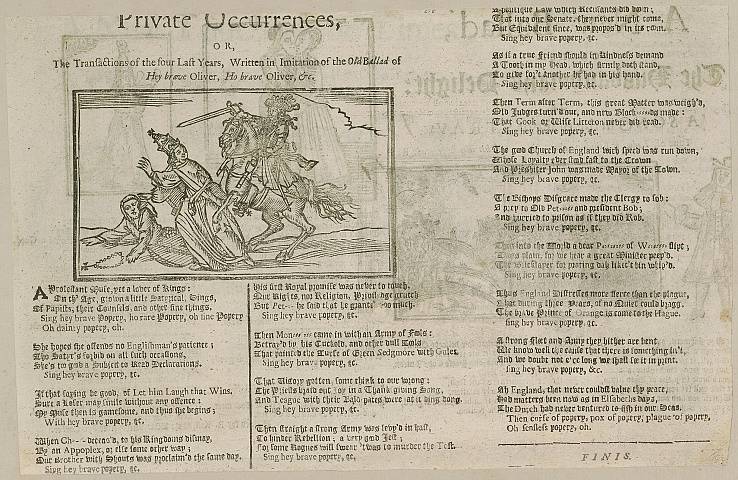 Private Occurrences,
OR,
The Transactions of the four Last Years, Written in Imitation of the Old Ballad of
Hey brave Oliver, Ho brave Oliver, &c.
A Protestant Muse, yet a lover of Kings:
On th' Age, grown a little Satyrical, Sings,
Of Papists, their Counsels, and other fine things.
Sing hey brave Popery, ho rare Popery, oh fine Popery
Oh dainty popery, oh.
She hopes she offends no Englishman's patience;
Tho Satyr's forbid on all such occasions,
She's too good a Subject to Read Declarations.
Sing hey brave popery, &c.
If that saying be good, of Let him Laugh that Wins.
Sure a Loser may smile without any offence:
My Muse then is gamesome, and thus she begins;
With hey brave popery, &c.
When Ch-- deceas'd, to his Kingdoms dismay,
By an Appoplex, or else some other way;
Our Brother with Shouts was proclaim'd the same day.
Sing hey brave popery, &c.
His first Royal promise was never to touch
Our Rights, nor Religion, Priviledge
But Pet--- he said that he granted too much.
Sing hey brave popery, &c.
Then Mon came in with an Army of Fools:
Betray'd by his Cuckold, and other dull Tools
That painted the Turfe of Green Sedgmore with Gules.
Sing hey brave popery, &c.
That Victory gotten, some think to our wrong:
The Priests baul out Joy in a Thanksgiving Song,
And Teague with their Bald pates were at it ding dong.
Sing hey brave popery, &c.
Then straight a strong Army was levy'd in hast,
To hinder Rebellion; a very good Jest;
For some Rogues will swear 'twas to murder the Test.
Sing hey brave popery, &c.
A politique Law which Recusants did doom;
That into our Senate, they never might come,
But Equivalent since, was propos'd in its room.
Sing hey brave popery, &c.
As if a true friend should in Kindness demand
A Tooth in my Head, which firmly doth stand,
To give for't another he had in his hand.
Sing hey brave popery, &c.
Then Term after Term, this great Matter was weigh'd,
Old Judges turn'd out, and new Block---ds made:
That Cook or Wise Littleton never did read.
Sing hey brave popery, &c.
The good Church of England with speed was run down,
Whose Loyalty ever stood fast to the Crown
And Presbiter John was made Mayor of the Town.
Sing hey brave popery, &c.
The Bishops Disgrace made the Clergy to sob:
A prey to Old Pet---- and president Bob;
And hurried to prison as if they did Rob.
Sing hey brave popery, &c.
Then into the World a dear slipt;
plain, for we hear a great Minister peep'd.
for prating day like't bin whip'd.
Sing hey brave popery, &c.
Thus England Distresses more fierce than the plague,
That during these Years, of no Quiet could bragg,
The brave Prince of Orange is come to the Hague.
sing hey brave popery, &c.
A strong Fleet and Army they hither are bent,
We know well the cause that there is something in't,
And we doubt not e're long we shall see it in print.
Sing hey brave popery, &c.
Ah England, that never couldst value thy peace,
Had matters been now as in Elsabeths days,
The Dutch had never ventured to fish in our Seas.
Then curse of popery, pox of popery, plague of popery,
Oh senseless popery, oh.
FINIS.